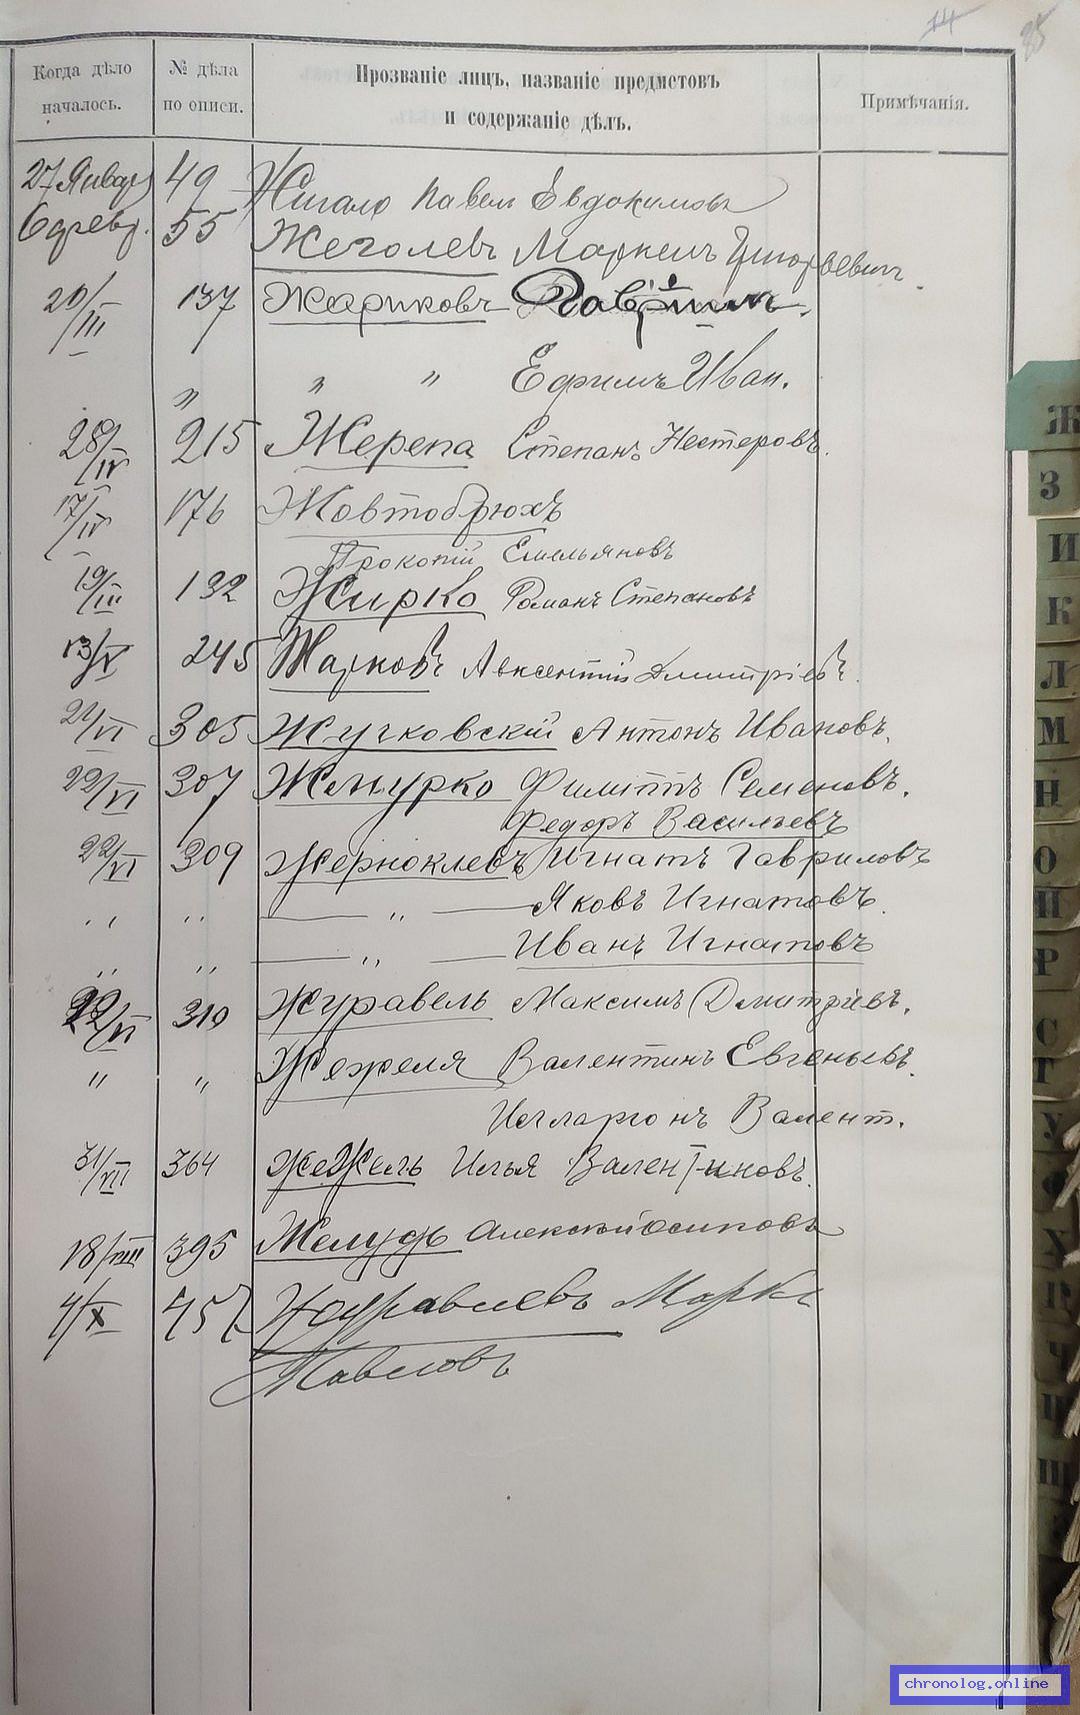 14 85
Когда дѣло началось. № дѣла по описи. Прозваніе лицъ, названіе предметовъ и содержаніе дѣлъ. Примѣчанія.
27 Январ 49 Жигало Павел Евдокимовъ
6 февр. 55 Жеголевъ Маркелъ Григорьевич.
20/III 137 Жариковъ Гавріил.
„ „ „ Ефимъ Иван.
28/IV 215 Жерепа Степанъ Нестеровъ.
17/IV 176 Жовтобрюхъ
Прокопій Емельяновъ
19/III 132 Жирко Романъ Степановъ
13/V 245 Жарковъ Авксентій Дмитріевъ.
21/VI 305 Жучковскій Антонъ Ивановъ.
22/VI 307 Жмурко Филиппъ Семеновъ.
Федоръ Васильевъ
22/VI 309 Жерноклевъ Игнатъ Гавриловъ
„ „ — „ — Яковъ Игнатовъ.
„ „ — „ — Иванъ Игнатовъ
22/VI 310 Журавель Максимъ Дмитріевъ.
„ „ Жежеля Валентинъ Евгеньевъ.
Илларіонъ Валент.
31/VII 364 Жежель Илья Валентиновъ.
18/VIII 395 Желудь Алексѣй Осиповъ
4/X 457 Журавлевъ Марк
Павловъ
Ж
З
И
К
Л
М
Н
О
П
Р
С
Т
У
Ф
Х
Ц
Ч
Ш
Щ
chronolog.online